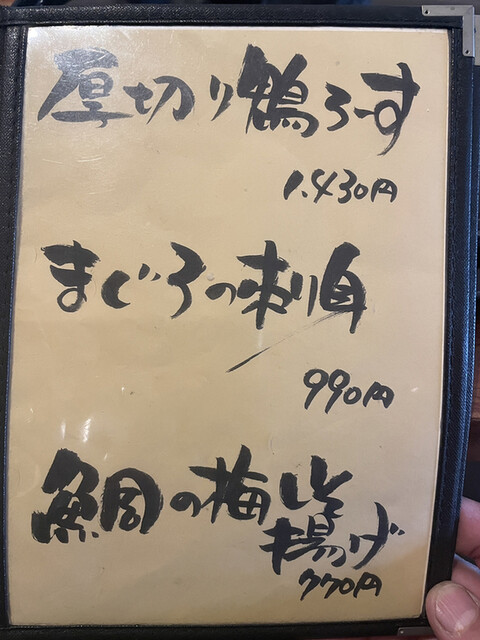 厚切り鴨ろーす
1.430円
まぐろの刺身
990円
鯛の梅しそ揚げ
770円